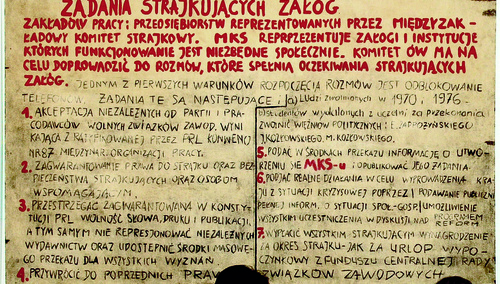 ŻĄDANIA STRAJKUJĄCYCH ZAŁÓG.
ZAKŁADÓW PRACY I PRZEDSIĘBIORSTW REPREZENTOWANYCH PRZEZ MIĘDZYZAK-
ŁADOWY KOMITET STRAJKOWY. MKS REPRPZEZENTUJE ZAŁOGI I INSTYTUCJE
KTÓRYCH FUNKCJONOWANIE JEST NIEZBĘDNE SPOŁECZNIE. KOMITET ÓW MA NA
CELU DOPROWADZIĆ DO ROZMÓW, KTÓRE SPEŁNIĄ OCZEKIWANIA STRAJKUJĄCYCH
ZAŁÓG. JEDNYM Z PIERWSZYCH WARUNKÓW ROZPOCZĘCIA ROZMÓW JEST ODBLOKOWANIE
TELEFONÓW. ŻĄDANIA TE SĄ NASTĘPUJĄCE:
1. AKCEPTACJA NIEZALEŻNYCH OD PARTII I PRA-
CODAWCÓW WOLNYCH ZWIĄZKÓW ZAWOD. WYNI-
KAJĄCA Z RATYFIKOWANEJ PRZEZ PRL KONWENCJI
NR 87 MIĘDZYNAR. ORGANIZACJI PRACY.
2. ZAGWARANTOWANIE PRAWA DO STRAJKU ORAZ BEZ-
PIECZEŃSTWA STRAJKUJĄCYCH ORAZ OSOBOM
WSPOMAGAJĄCYM.
3. PRZESTRZEGAĆ ZAGWARANTOWANĄ W KONSTY-
TUCJI PRL WOLNOŚĆ SŁOWA, DRUKU I PUBLIKACJI,
A TYM SAMYM NIE REPRESJONOWAĆ NIEZALEŻNYCH
WYDAWNICTW ORAZ UDOSTĘPNIĆ ŚRODKI MASOWE-
GO PRZEKAZU DLA WSZYSTKICH WYZNAŃ.
4. PRZYWRÓCIĆ DO POPRZEDNICH PRAW
a) LUDZI ZWOLNIONYCH W 1970, 1976-
STUDENTÓW WYDALONYCH Z UCZELNI ZA PRZEKONANIA
ZWOLNIĆ WIĘŹNIÓW POLITYCZNYCH
J. KOZŁOWSKIEGO M. KOZŁOWSKIEGO.
5. PODAĆ W ŚRODKACH PRZEKAZU INFORMACJĘ O UTWO-
RZENIU SIĘ MKS-u I OPUBLIKOWAĆ JEGO ŻĄDANIA
6. PODJĄĆ REALNE DZIAŁANIA W CELU WYPROWADZENIA KRA-
JU Z SYTUACJI KRYZYSOWEJ POPRZEZ: PODAWANIE PUBLICZNIE
PEŁNEJ INFORM. O SYTUACJI SPOŁ-GOSP. UMOŻLIWIENIE
WSZYSTKIM UCZESTNICZENIA W DYSKUSJI NAD PROGRAMEM
REFORM
7. WYPŁACIĆ WSZYSTKIM STRAJKUJĄCYM WYNAGRODZENIE
ZA OKRES STRAJKU - JAK ZA URLOP WYPO-
CZYNKOWY Z FUNDUSZU CENTRALNEJ RADY
ZWIĄZKÓW ZAWODOWYCH